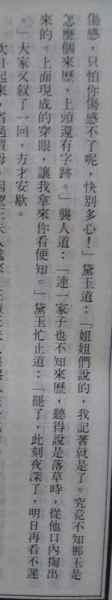 傷感，只怕你傷感不了呢，快別多心！」黛玉道：「姐姐們說的，我記著就是了。究竟不知那玉是
怎麼個來歷，上頭還有字跡。」襲人道：「連一家子也不知來歷，聽得說是落草時，從他口內掏出
來的。上面現成的穿眼，讓我拿來你看便知。」黛玉忙止道：「罷了，此刻夜深了，明日再看不遲
。」大家又敘了一回，方才安歇。
次日起來，省過賈母，